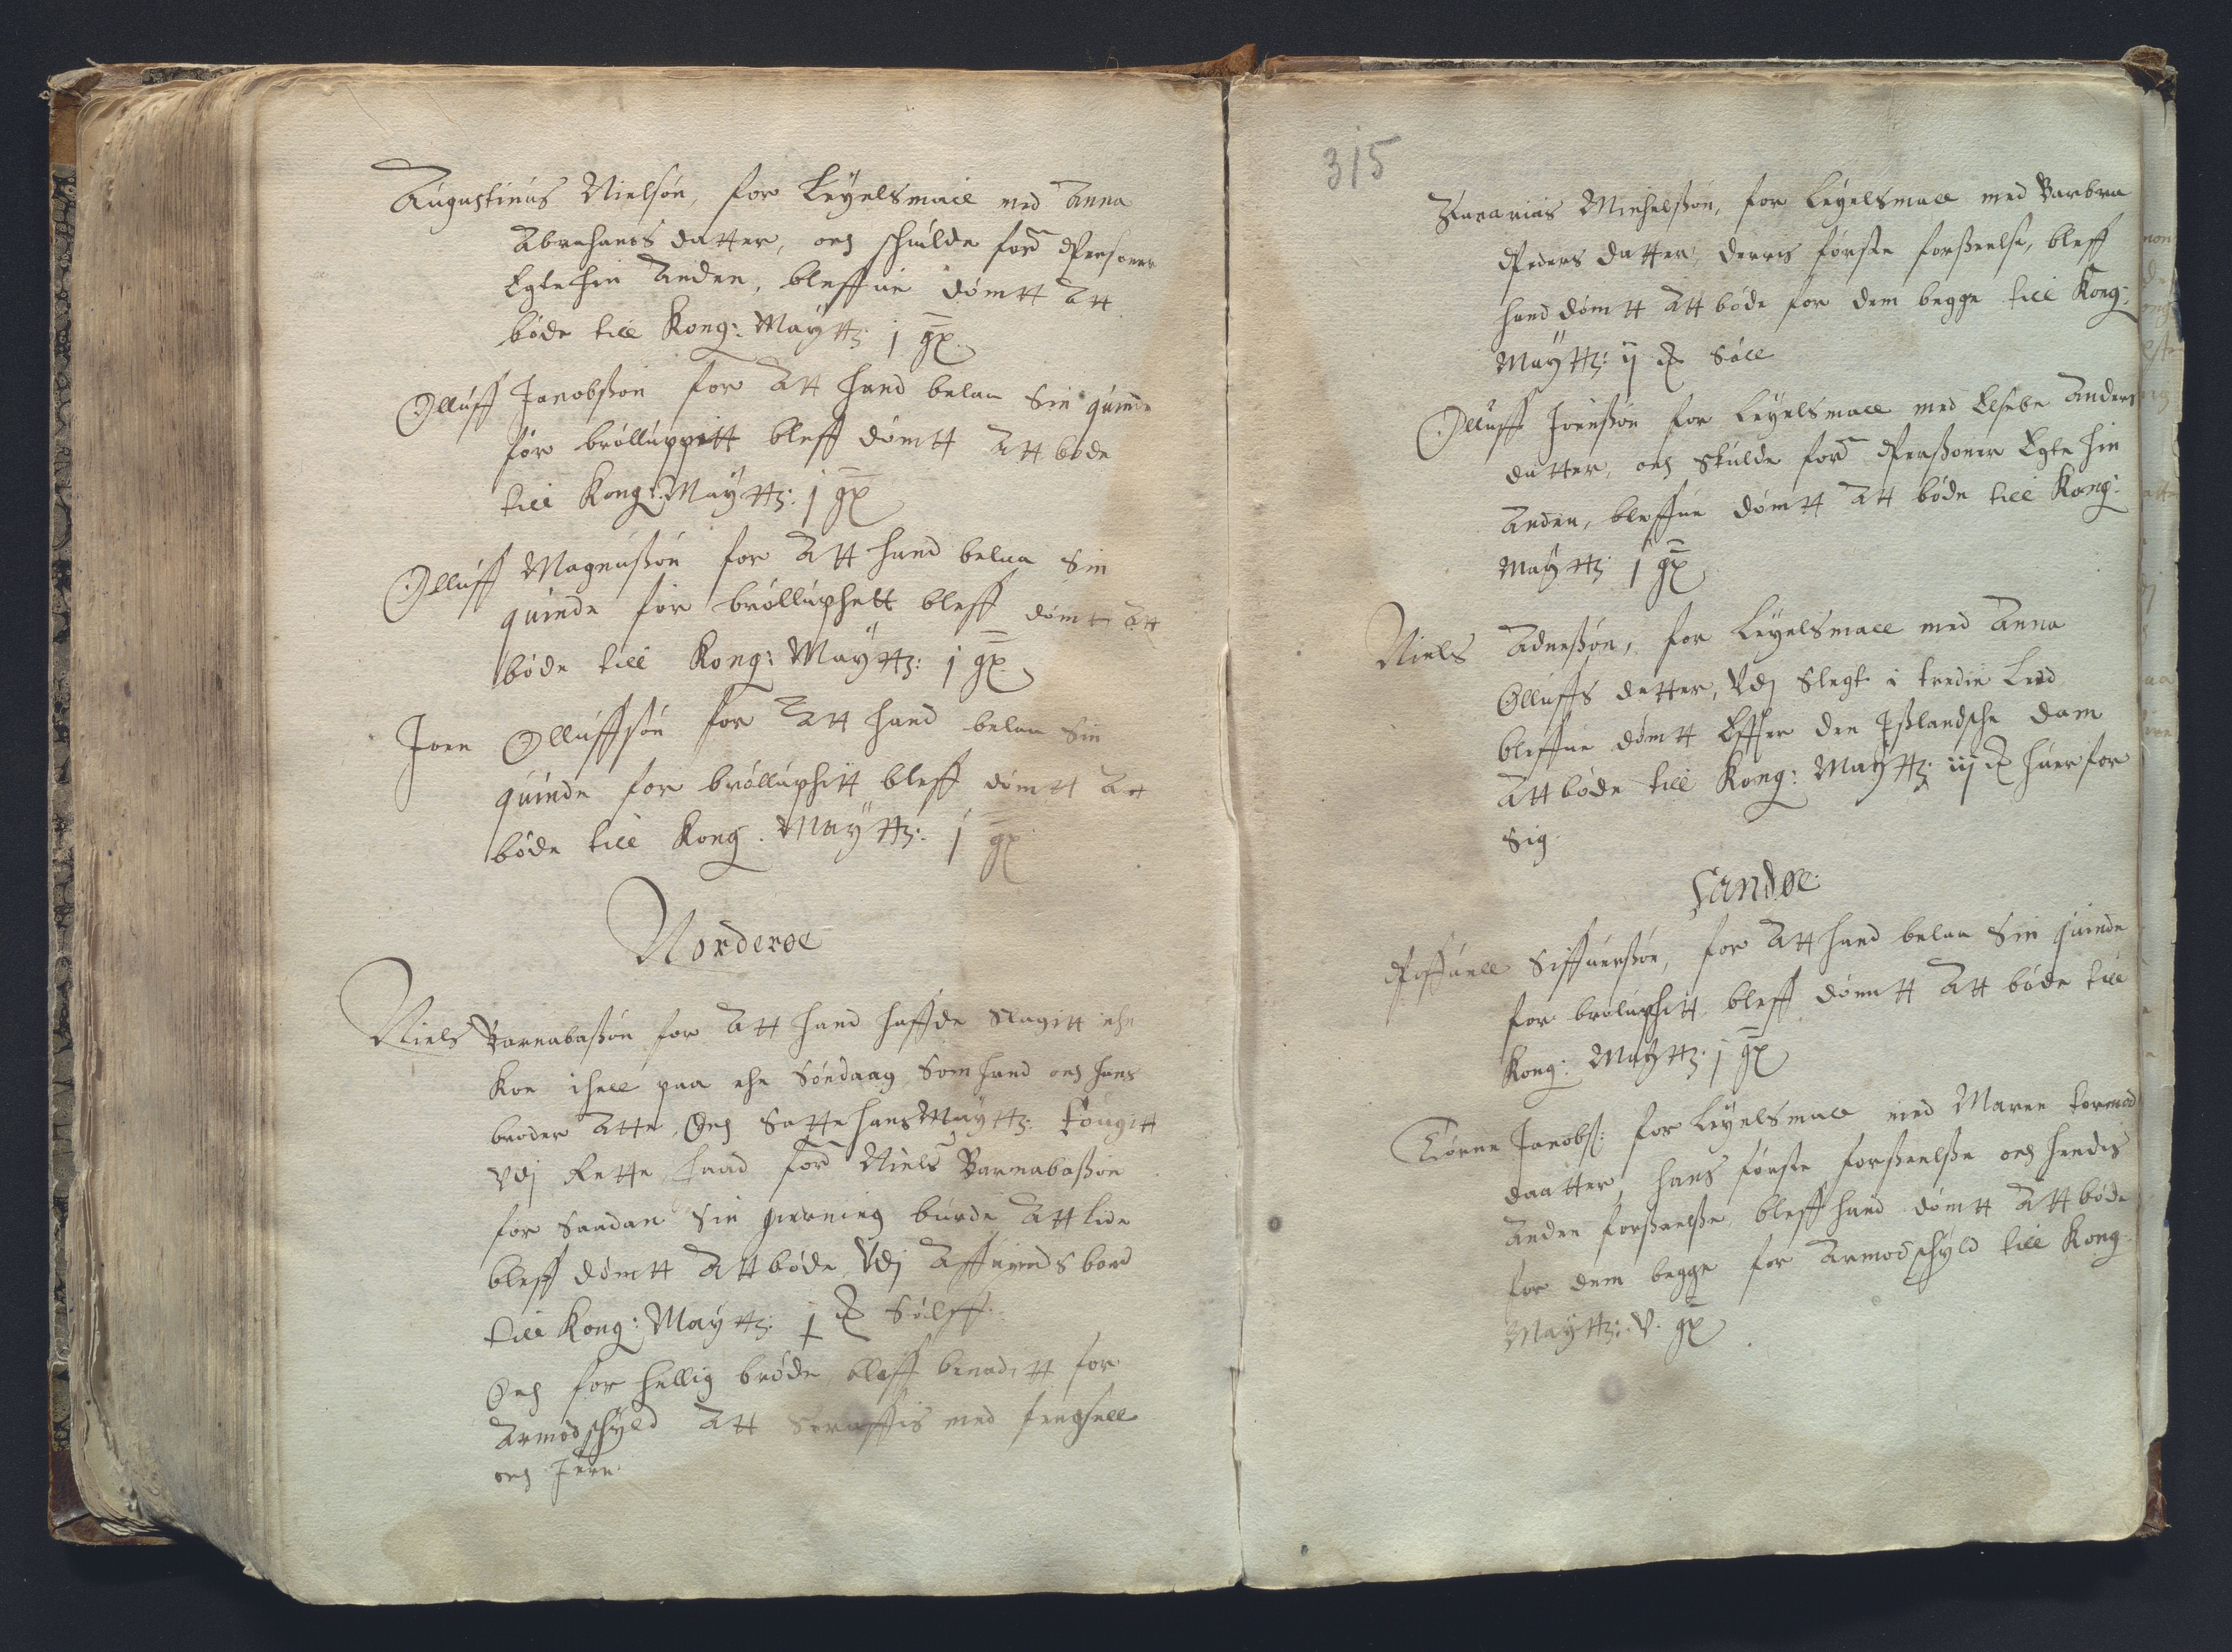 Augustinus Nielsøn, for Leyelsmaall med Anna
Abrahams datter, och schulde for: Personer
Egte hin Anden, bleffue dømtt Att
bøde till Kong: Maÿttz: j gℓ
Olluff Jacobsøn for Att hand belaa Sin quinde
før brølluppitt bleff dømtt Att bøde
till Kong: Maÿttz: j gℓ
Olluff Magnußøn for Att hand belaa Sin
quinde før brølluphett bleff dømtt Att
bøde till Kong: Maÿttz: j gℓ
Joen Olluffsøn for Att hand belaa Sin
quinde før brølluphitt bleff dømtt Att
bøde till Kong. Maÿttz: j gℓ
Norderøe
Niels Barnabaßøn for Att hand haffde Slagitt ehn
Koe ihiell paa ehn Søndaag, Som hand och hans
broder Atte, Och Satte hans Maÿttz: fougitt
Vdj Rette, huad for: Niels Barnabaßøn
for Saadan Sin gierning burde Att lide
bleff dømtt Att bøde Vdj Affuinds bod
till Kong: Maÿttz: j ℔ Sølff.
Och for hellig brøde, bleff benaditt for
Armodschyld Att Straffis med fengsell
och Jern
315
Zacarias Michelßøn, for Leyelsmaall med Barbra
Peders datter, deris første forseelse, bleff
hand dømtt Att bøde for dem begge till Kong:
Maÿttz: ij ℔ Søll
Olluff Joenßøn for Leyelsmaall med Elsebe Anders
datter, och Skulde for: Perßoner Egte hin
Anden, bleffue dømtt Att bøde till Kong:
Maÿttz: j gℓ
Niels Adneßøn, for Leyelsmaall med Anna
Olluffs datter, Vdj Slegt i tredie Leed
bleffue dømtt Effter den Ißlandsche dom
Att bøde till Kong: Maÿttz: iij ℔ huer for
Sig.
Sandøe
Poffuell Siffuerßøn, for Att hand belaa Sin quinde
for brøluphitt, bleff dømtt Att bøde till
Kong: Maÿttz: j gℓ
Biørne Jacobs: for Leyelsmaall med Maren tormod
daatter, hans første forseelße och hendis
Anden forseelße, bleff hand dømtt Att bøde
for dem begge for Armodschyld till Kong.
Maÿttz: v. gℓ